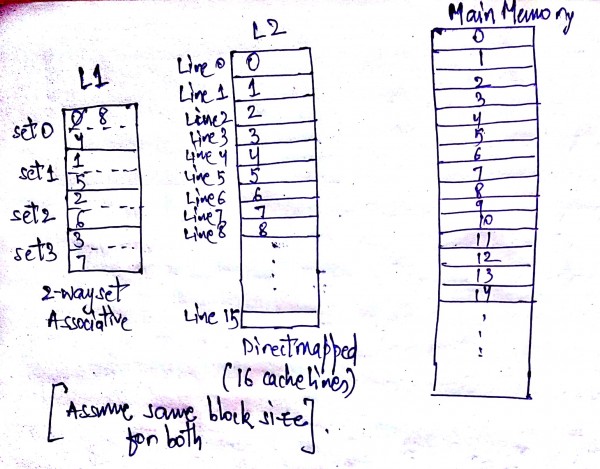 L1
set 0
0 8
4
set 1
1
5
set 2
2
6
set 3
3
7
2-way set
Associative
L2
Line 0 0
Line 1 1
Line 2 2
Line 3 3
Line 4 4
Line 5 5
Line 6 6
Line 7 7
Line 8 8
Line 15
Direct mapped
(16 cache lines)
Main Memory
0
1
2
3
4
5
6
7
8
9
10
11
12
13
14
[Assume same block size
for both].